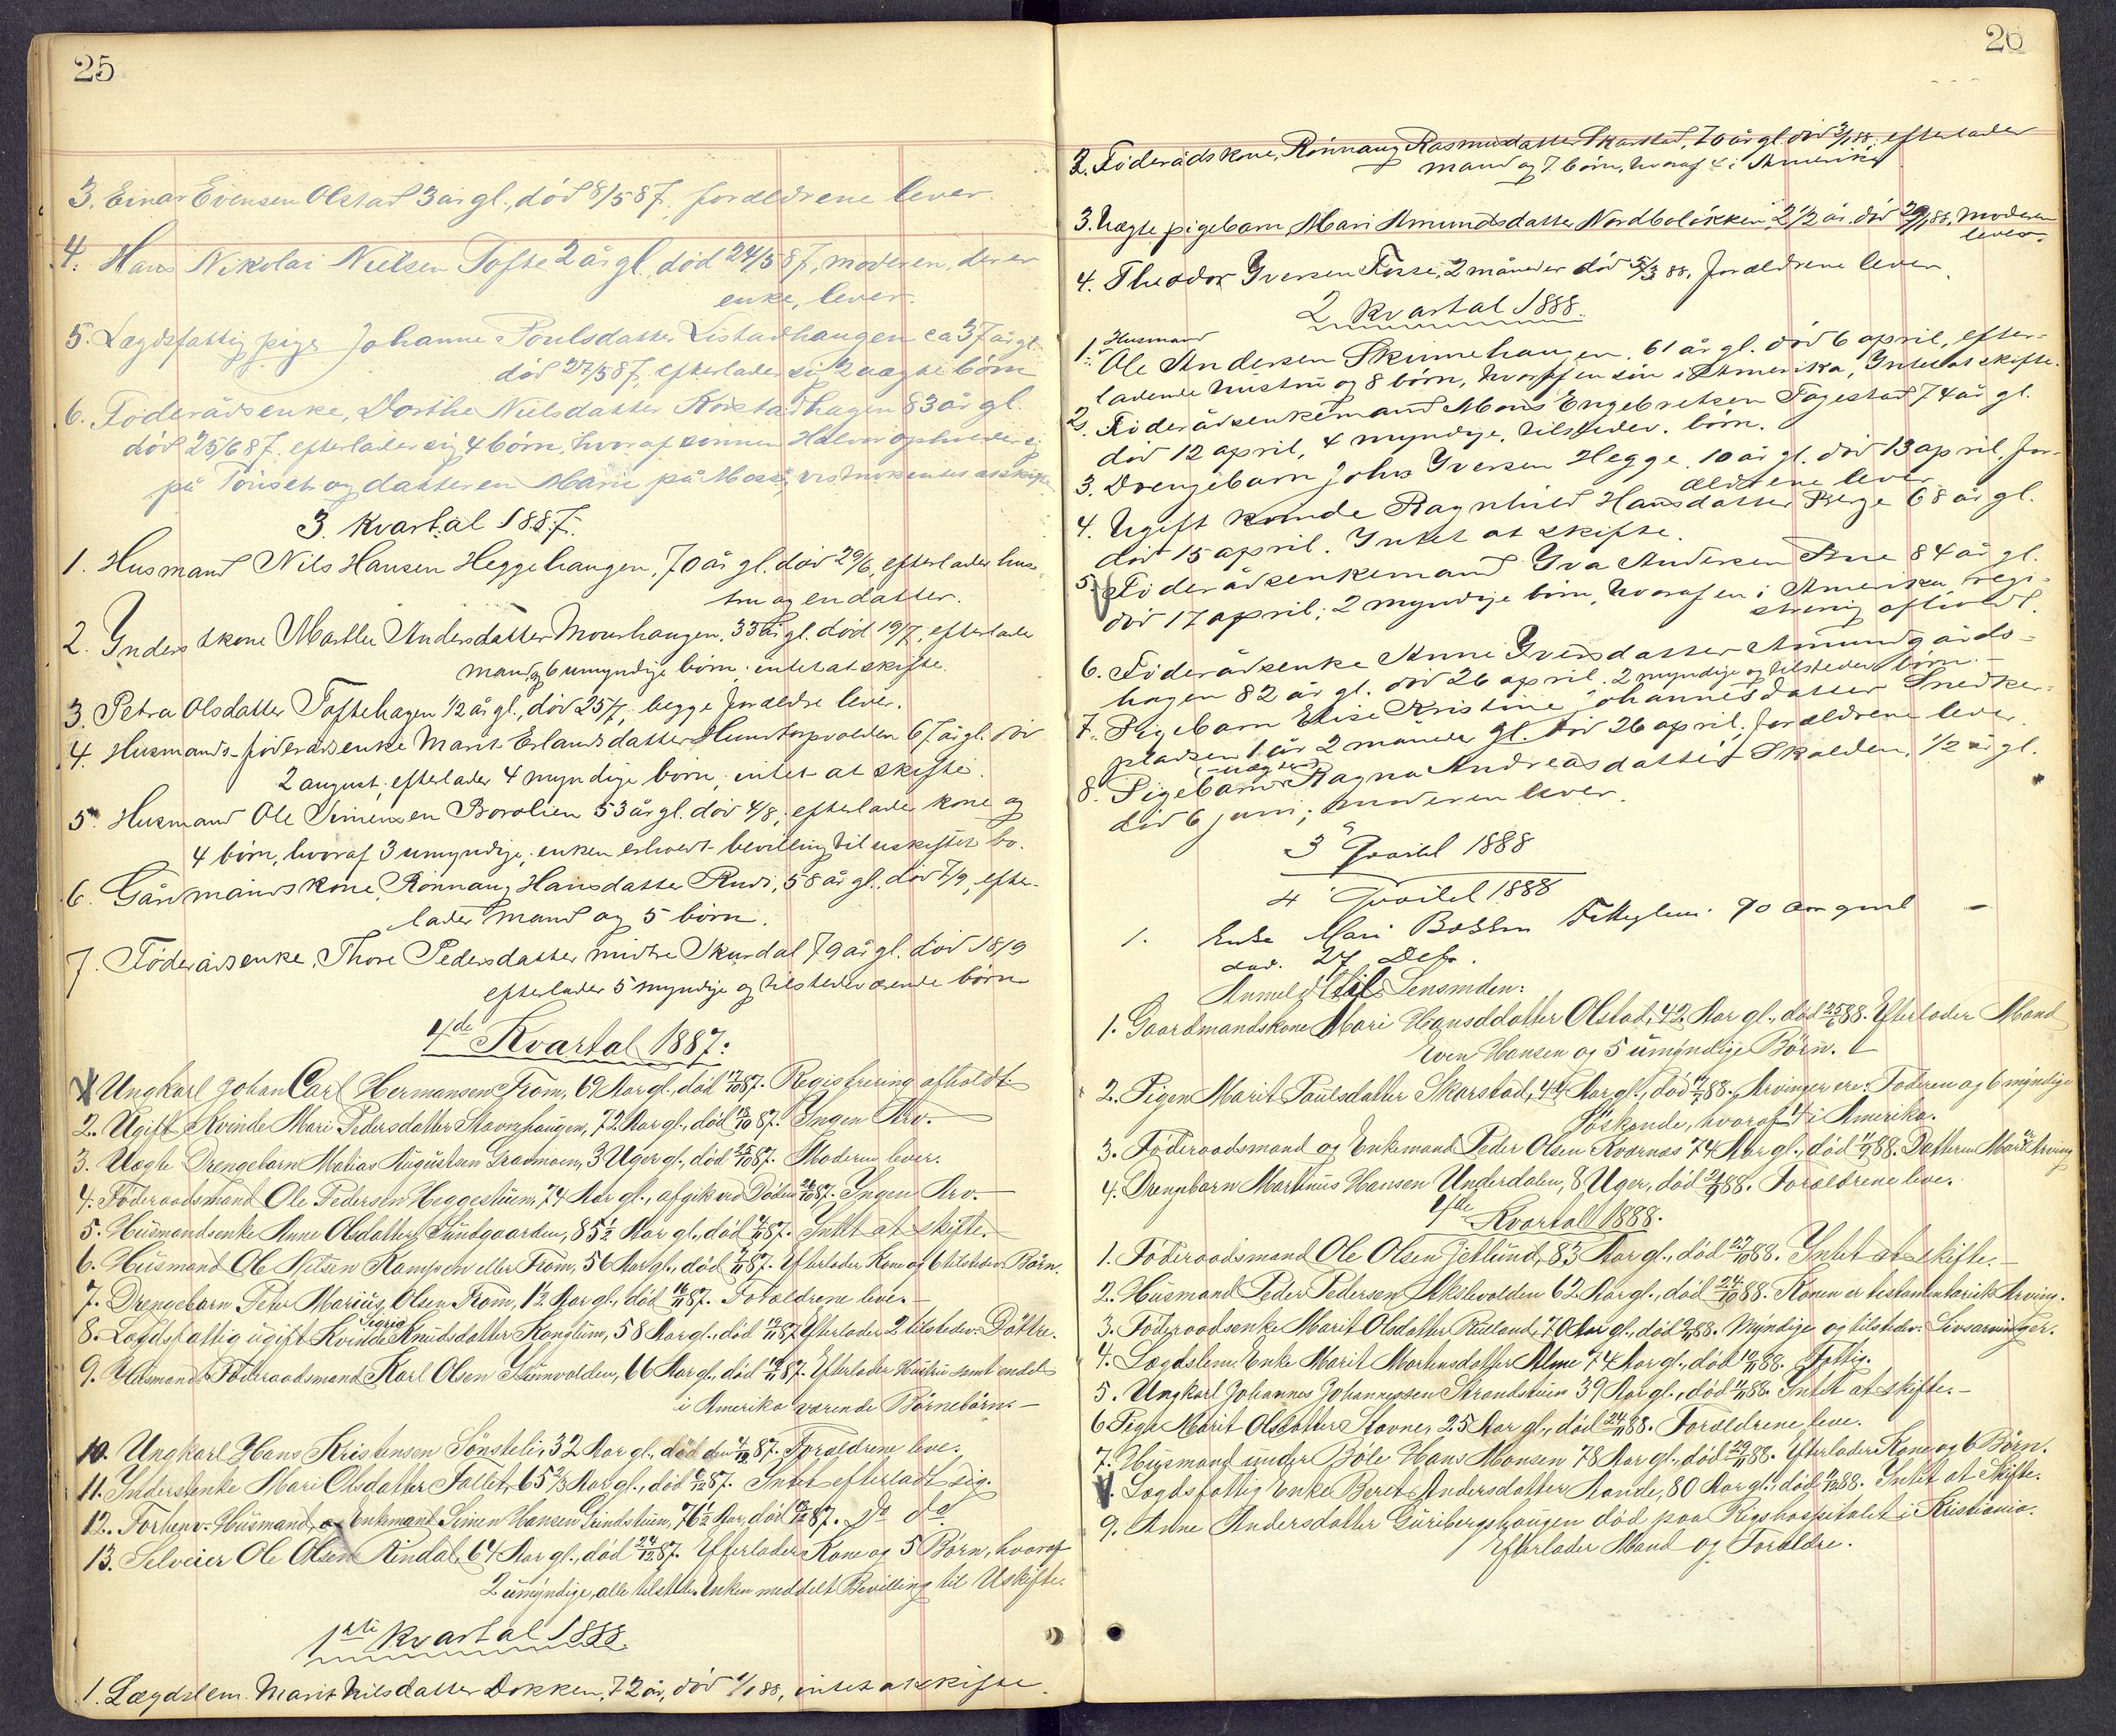 25
3. Einar Evensen Olstad 3 år gl., død 8/5 87, forældrene lever.
4. Hans Nikolai Nielsen Tofte 2 år gl. død 24/5 87, moderen, der er
enke, lever.
5. Lægdsfattig pige Johanne Poulsdatter Listadhaugen ca 37 år gl.
død 27/5 87, efterlader sig 2 uægte børn
6. Föderådsenke, Dorthe Nielsdatter hagen 83 år gl.
død 25/6 87. efterlader sig 4 børn, hvoraf sönnen Halvor opholder sig
på Tönset og datteren Marie på Moss, vistnok intet at skifte
3. Kvartal 1887.
1. Husmand Nils Hansen Heggehaugen, 70 år gl. død 29/6, efterlader hus-
tru og en datter.
2. Inderst kone Marthe Andersdatter Mourhaugen, 33 år gl. død 19/7, efterlader
mand og 6 umyndige børn; intet at skifte.
3. Petra Olsdatter Toftehagen 1/2 år gl., död 25/7, begge forældre lever.
4. Husmands-föderådsenke Marit Erlandsdatter Hundtorpvolden 67 år gl. död
2 august; efterlader 4 myndige börn; intet at skifte.
5. Husmand Ole Simensen Borolien 53 år gl. död 4/8; efterlader kone og
4 börn, hvoraf 3 umyndige; enken erhvervt bevilling til uskiftet bo.
6. Gårdmands kone, Rönnaug Hansdatter Rudi, 58 år gl., död 7/9, efter-
lader mand og 5 börn.
7. Föderådsenke, Thore Pedersdatter midtre Skurdal 79 år gl. död 18/9
efterlader 5 myndige og tilstedeværende börn
4de Kvartal 1887:
Ungkarl Johan Carl Hermansen From, 69 Aar gl., död 17/10 87. Registrering afholdt.
2. Ugift Kvinde Mari Pedersdatter Stavnshaugen, 72 Aar gl., död 18/10 87. Ingen Arv.
3. Uægte Drengebarn Matias Augustsen Graumoen, 3 Uger gl., död 22/10 87. Moderen lever.
4. Föderaadsmand Ole Pedersen Heggestuen, 74 Aar gl., afgik ved Döden 26/10 87. Ingen Arv.
5. Husmandsenke Anne Olsdatter Sundgaarden, 85 1/2 Aar gl., död 4/11 87. Intet at skifte.
6. Husmand Ole Kampen eller From, 56 Aar gl., död 7/11 87. Efterlader Kone og 6 tilstedev. Börn.
7. Drengebarn Peter Marius Olsen From, 1 1/2 Aar gl., död 16/11 87. Forældrene leve.
8. Lægdsfattig ugift Kvinde Sigrid Knudsdatter Konglum, 58 Aar gl., död 17/11 87. Efterlader 2 tilstedev. Döttre.
9. Husmands Föderaadsmand Karl Olsen volden, 66 Aar gl., död 19/11 87. Efterlader Hustru samt endel
i Amerika værende Börnebörn.
10. Ungkarl Hans Kristensen Sönsteli, 32 Aar gl., död den 4/12 87. Forældrene leve.
11. Inderstenke Mari Olsdatter Follet, 65 2/3 Aar gl., död 6/12 87. Intet efterladt sig.
12. Forhenv. Husmand, og Enkemand Simen Hansen Grindstuen, 76 1/2 Aar, död 18/12 87. Do do.
13. Selveier Ole Olsen Rindal, 64 Aar gl., död 24/12 87. Efterlader Kone og 5 Börn, hvoraf
2 umyndige, alle tilstede. Enken meddelt Bevilling til Uskifte.
1ste kvartal 1888
1. Lægdslem. Marit Nilsdatter Dokken, 72 år, död 1/1 88, intet at skifte.
26
2. Föderåds kone, Rönnaug Rasmusdatter Skarstad, 70 år gl. död 3/1 88, efterlader
mand og 7 börn, hvoraf 4 i Amerika
3. Uægte pigebarn, Mari Amundsdatter Nordbolökken, 2 1/2 år. död 29/1 88, moderen
lever.
4. Theodor Iversen Fosse, 2 måneder död 5/3 88, forældrene lever.
2 kvartal 1888.
1. Husmand
Ole Andersen Skinnehaugen, 61 år gl. död 6 april, efter-
ladende hustru og 8 börn, hvoraf en sön i Amerika, Intet at skifte.
2. Föderådsenkemand Mons Engebretsen Fagestad 74 år gl.
död 12 april, 4 myndige, tilstedev. börn.
3. Drengebarn Johs Iversen Hegge, 10 år gl. död 13 april, for-
ældrene lever
4. Ugift kvinde Ragnhild Hansdatter Berge 68 år gl.
död 15 april. Intet at skifte.
5. Föderådsenkemand Iva Andersen Bue 84 år gl.
död 17 april; 2 myndige börn, hvoraf en i Amerika, regi-
strering afholdt.
6. Föderådsenke Anne Iversdatter Amundgårds-
hagen 82 år gl. död 26 april. 2 myndige og tilstedev. börn.
7. Pigebarn Elise Kristine Johannesdatter Snedker-
pladsen 1 år 2 måneder gl. död 26 april; forældrene lever.
8. Pigebarn (uægte) Ragna Andreasdatter Skolden, 1/2 år gl.
död 6 juni; moderen lever.
3 Qvartel 1888
4 Qvartel 1888
1. Enke Mari 90 aar gml
död. 27 Debr.
Anmeldt til Lensmden:
1. Gaardmandskone Mari Hansddatter Olstad, 42 Aar gl., död 25/6 88. Efterlader Mand
Even Hansen og 5 umyndige Börn.
2. Pigen Marit Paulsdatter Skarstad, 44 Aar gl., död 9/7 88. Arvinger ere: Faderen og 6 myndige
Söskende, hvoraf 4 i Amerika.
3. Föderaadsmand og Enkemand Peder Olsen Kværnæs 74 Aar gl., död 11/9 88. Datteren Mari er Arving
4. Drengebarn Martinus Hansen Underdalen, 8 Uger, död 21/9 88. Forældrene leve.
4de Kvartal 1888.
1. Föderaadsmand Ole Olsen Jetlund, 83 Aar gl., död 27/10 88. Intet at skifte.
2. Husmand Peder Pedersen Akslevolden 62 Aar gl., död 24/10 88. Konen er testamentarisk Arving.
3. Föderaadsenke Marit Olsdatter Rutland, 70 Aar gl., död 2/11 88. Myndige og tilstedev. Livsarvinger.
4. Lægdslem Enke Marit Mortensdatter Alme 74 Aar gl., död 10/11 88. Fattig.
5. Ungkarl Johannes Johannessen Strandstuen 39 Aar gl., död 11/11 88. Intet at skifte.
6 Pige Marit Olsdatter Stavne, 25 Aar gl., död 24/11 88. Forældrene leve.
7. Husmand under Böle Hans Hansen 78 Aar gl., död 29/11 88. Efterlader Kone og 6 Börn.
Lægdsfattig Enke Berit Andersdatter Aande, 80 Aar gl., död 9/12 88. Intet at Skifte.
9. Anne Andersdatter Guribergshaugen död paa Rigshospitalet i Kristiania.
Efterlader Mand og Forældre.